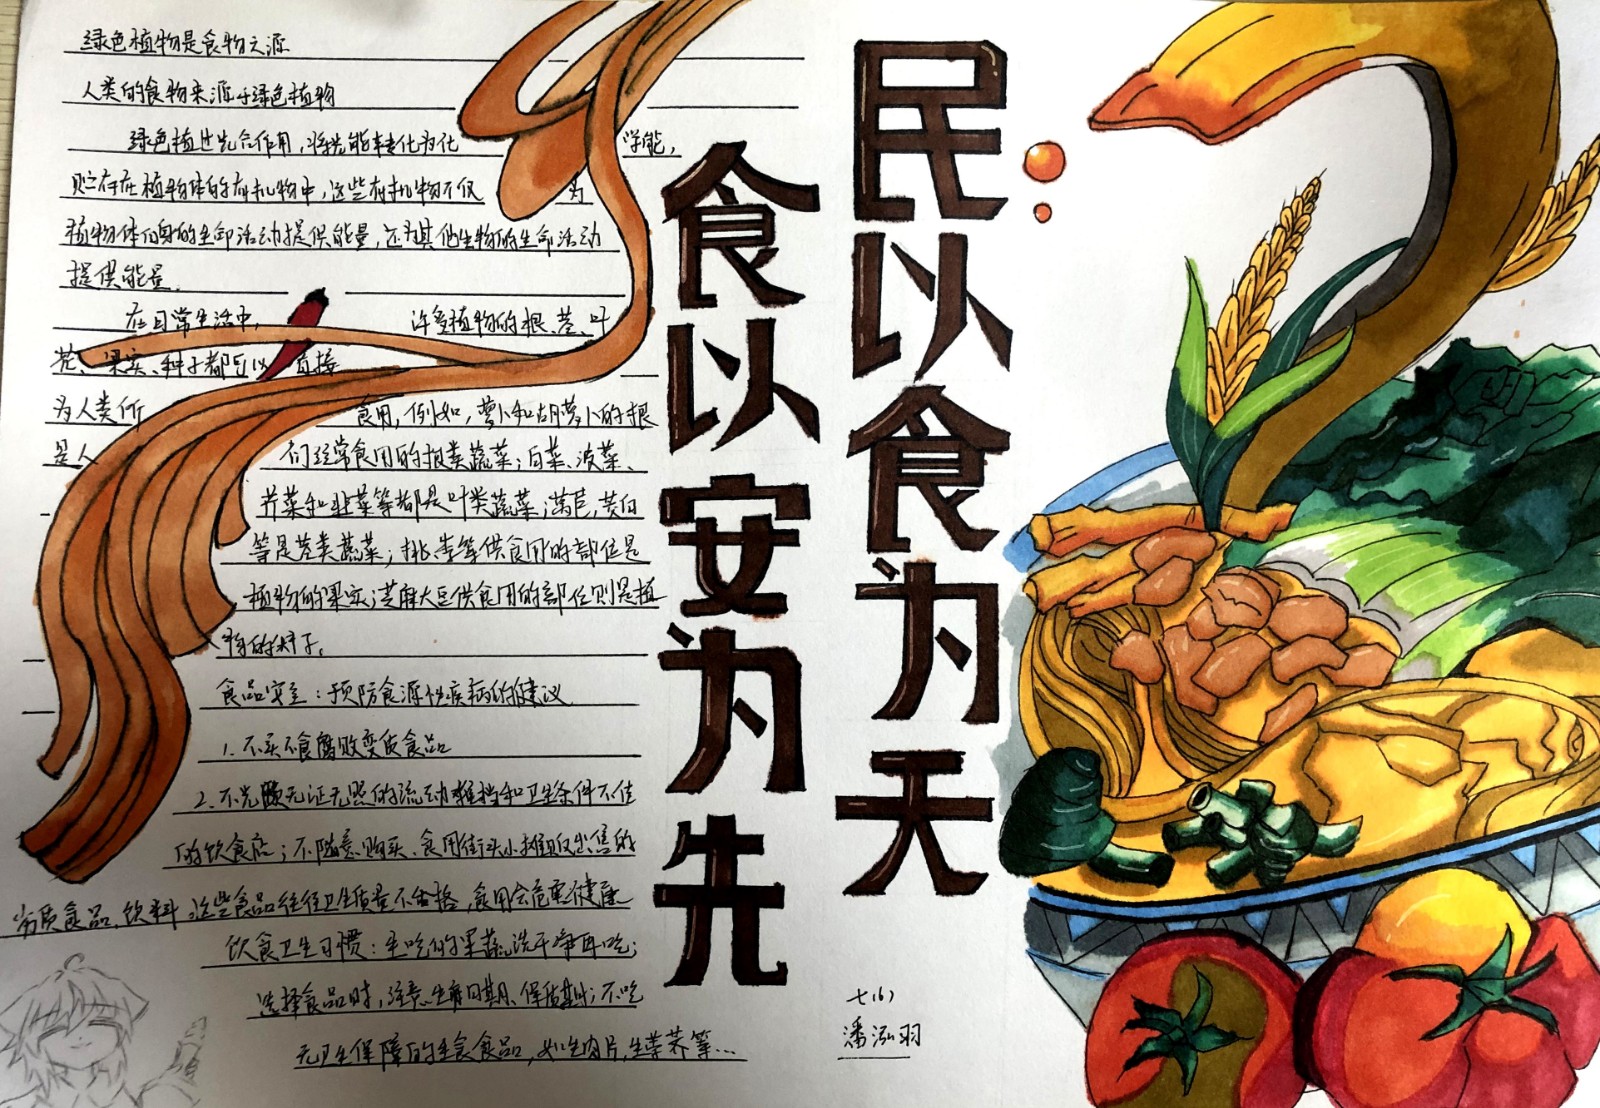 民以食为天
食以安为先
绿色植物是食物之源
人类的食物来源于绿色植物
绿色植过光合作用，将光能转化为化学能，
贮存在植物体的有机物中，这些有机物不仅为
植物体自身的生命活动提供能量，还为其他生物的生命活动
提供能量。
在日常生活中，许多植物的根、茎、叶
花、果实、种子都可以直接
为人类所食用，例如，萝卜和胡萝卜的根
是人们经常食用的根类蔬菜；白菜、菠菜、
芹菜和韭菜等都是叶类蔬菜；莴苣，茭白
等是茎类蔬菜；桃、李等供食用的部位是
植物的果实；芝麻大豆供食用的部位则是植
物的种子。
食品安全：预防食源性疾病的建议
1.不买不食腐败变质食品
2.不光顾无证无照的流动摊档和卫生条件不佳
的饮食店；不随意购买、食用街头小摊贩出售的
劣质食品、饮料 这些食品往往卫生质量不合格，食用会危害健康
饮食卫生习惯：生吃的果蔬洗干净再吃；
选择食品时，注意生产日期、保质期；不吃
无卫生保障的生食食品，如生肉片，生荸荠等…
七（6）
潘泓羽